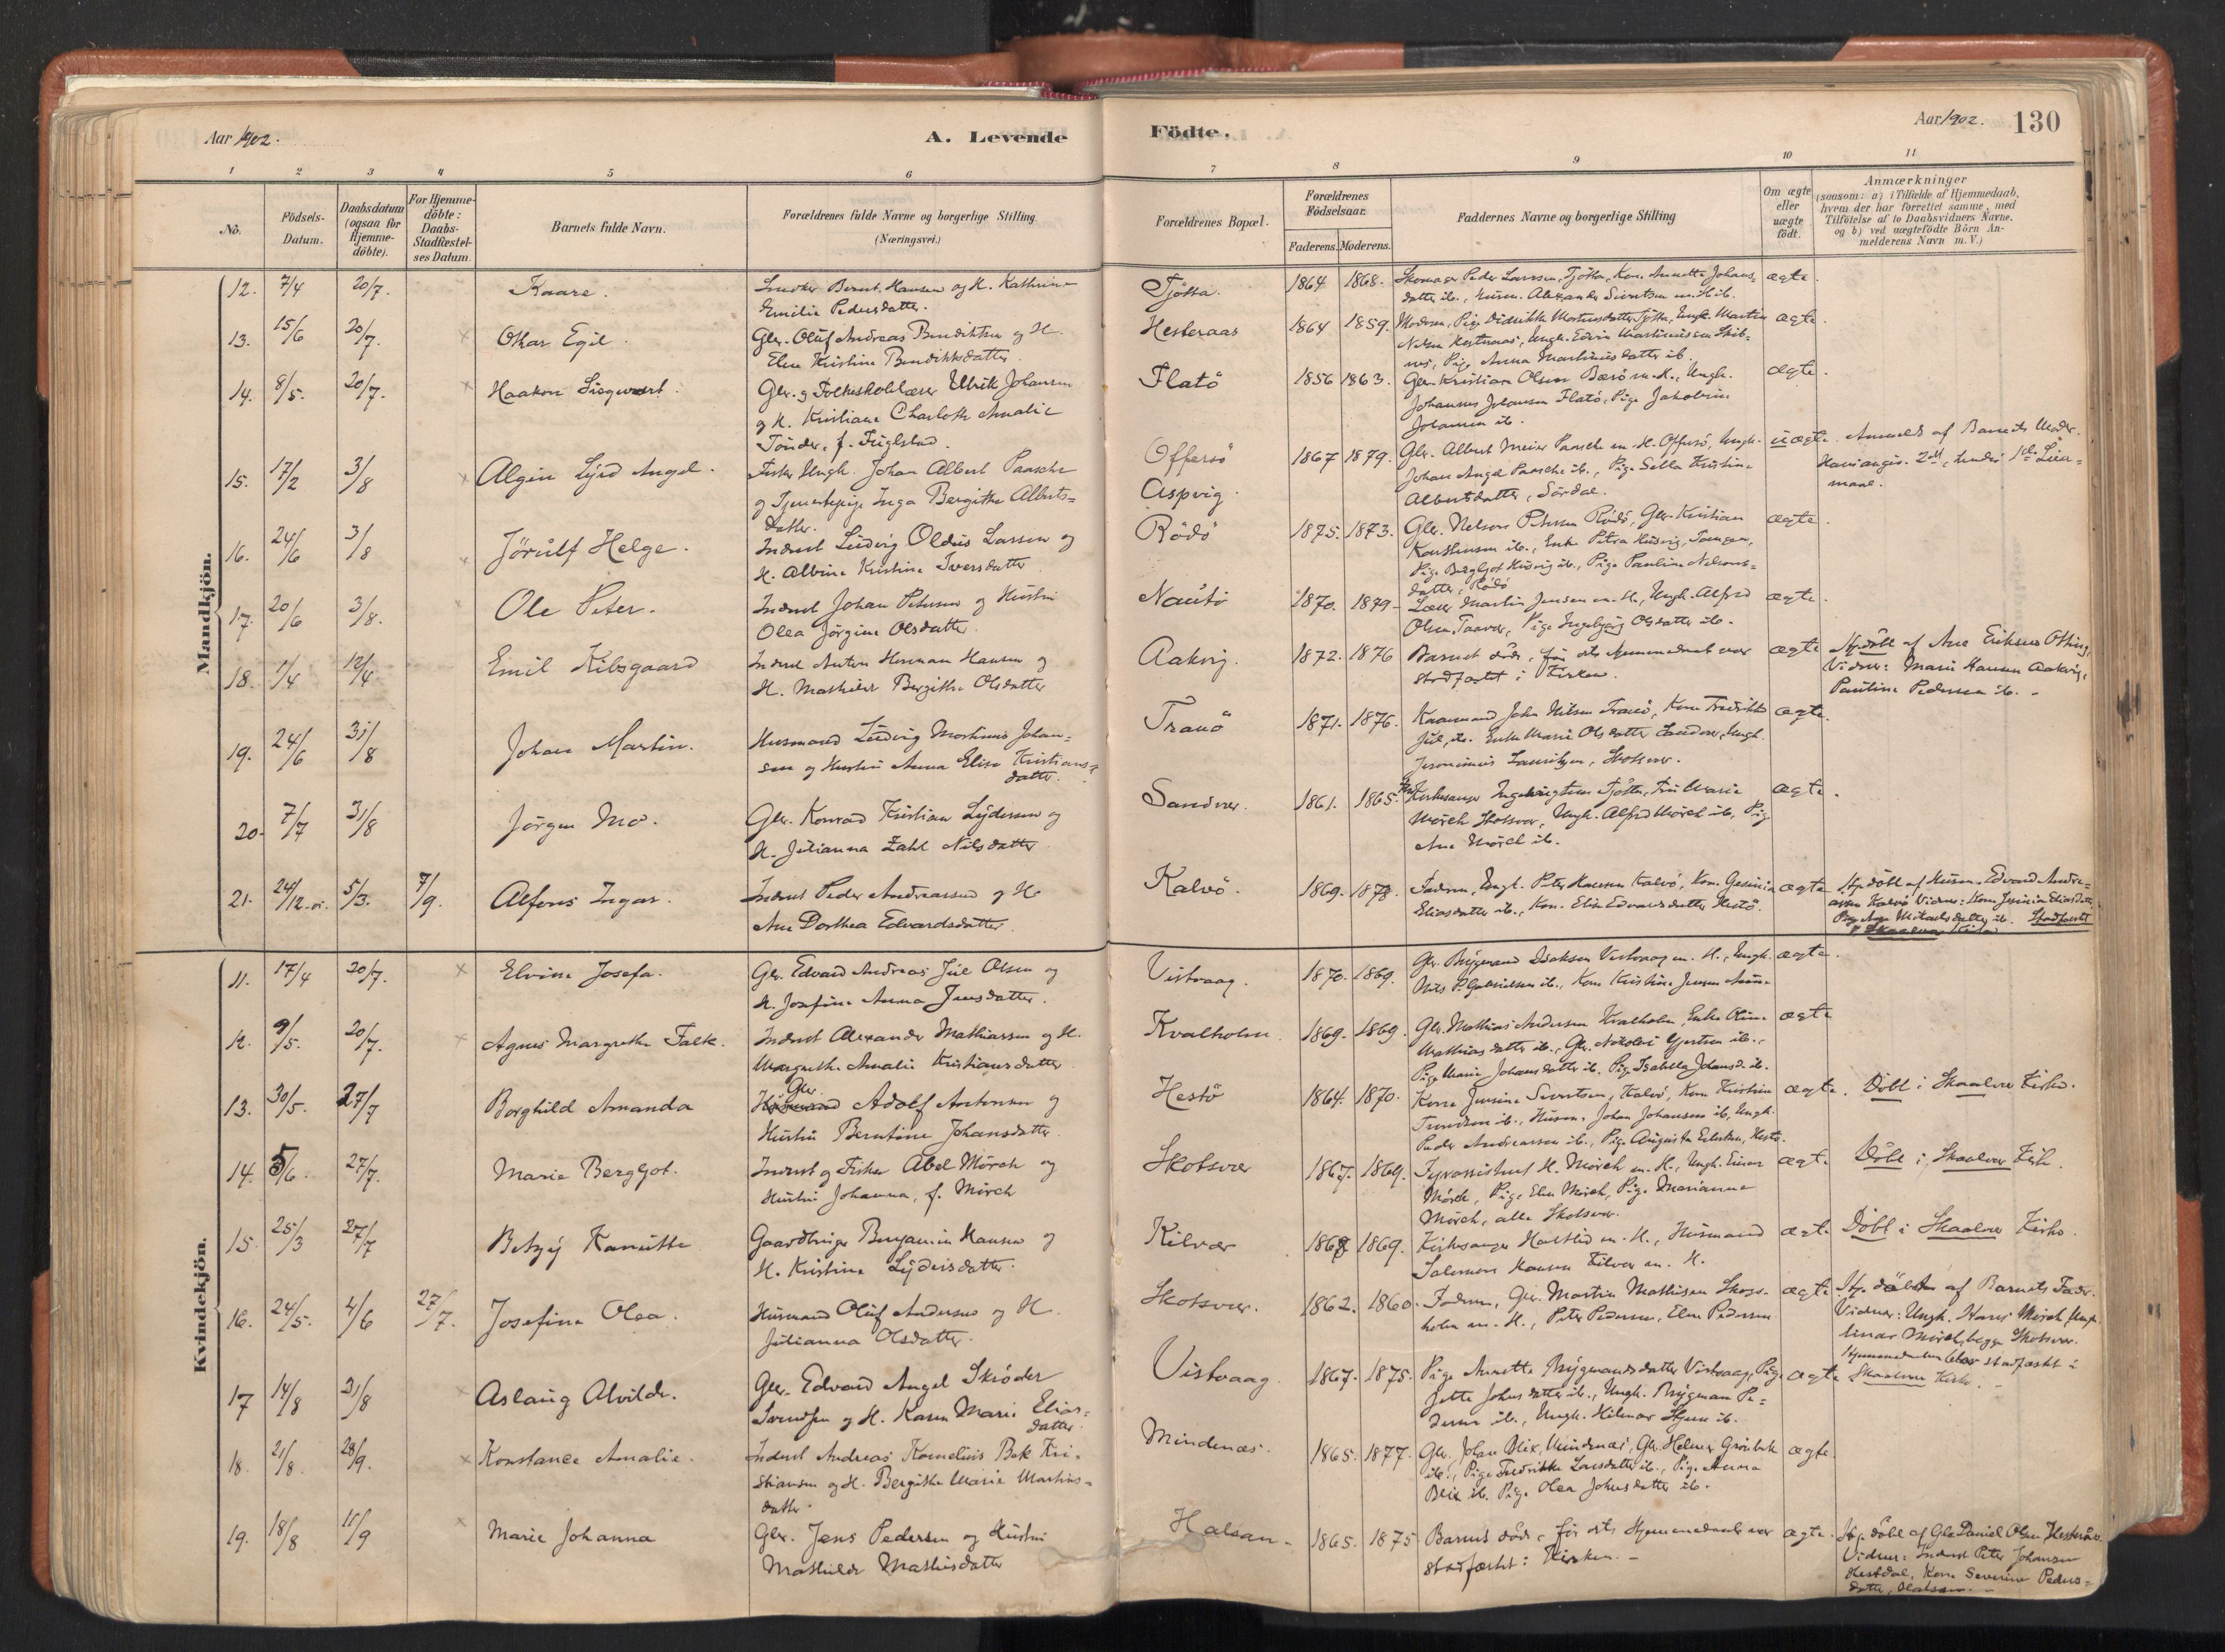 Aar 1902.
A. Levende
Födte.
Aar 1902. 130
1 2 3 4 5 6 7 8 9 10 11
No.
Födsels-
Datum.
Daabsdatum
(ogsaa for
Hjemme-
döbte).
For Hjemme-
döbte:
Daabs-
Stadfæstel-
ses Datum.
Barnets fulde Navn.
Forældrenes fulde Navne og borgerlige Stilling
(Næringsvei.)
Forældrenes Bopæl.
Forældrenes
Födselsaar.
Faderens. Moderens.
Faddernes Navne og borgerlige Stilling
Om ægte
eller
uægte
födt.
Anmærkninger
(saasom: a) i Tilfælde af Hjemmedaab,
hvem der har forrettet samme, med
Tilföielse af to Daabsvidners Navne.
og b) ved uægtefödte Börn An-
melderens Navn m.V.)
Mandkjön.
12. 7/4 20/7. Kaare.
Bernt Hansen og H. Kathrine
Emilie Pedersdatter.
Tjötta. 1864 1868.
Skomager Peder Larssen, Tjötta, Kone Annette Johans-
datter ib., Husm. Alexander Sivertsen m. H. ib.
ægte.
13. 15/6 20/7. Othar Egil.
Gbr. Oluf Andreas Bendiktsen og H.
Elen Kristine Bendikksdatter.
Hesteraas 1864 1859.
Moderen, Pige Didrikke Mortensdatter Tjötta, Ungk. Martin
Nilsen Hesteraas, Ungk. Edvin Martinussen
Pige Anna Martinusdatter ib.
ægte.
14. 8/5. 20/7. Haakon Sigwart.
Gbr. og Folkeskolelærer Ulrik Johansen
og H. Kristiane Charlotte Amalie
Tönder, f. Fuglstad.
Flatö 1856 1863.
Gbr. Kristian Olsen Bærö m. H., Ungk.
Johannes Johansen Flatö, Pige Jakobine
Johansen ib.
ægte.
15. 17/2 3/8 Algin Lyid Angel.
Fisker Ungk. Johan Albert Paasche
og Tjenestepige Inga Bergithe Alberts-
datter.
Offersö
Aspvig. 1867 1879.
Gbr. Albert Meier Paasche m. H. Offersö, Ungk.
Johan Angel Paasche ib., Pige Sella Kristine
Albertsdatter, Sördal.
uægte.
Anmeldt af Barnets Moder.
Hans angiv. 2det, hendes 1ste Leier-
maal.
16. 24/6 3/8 Jörulf Helge.
Inderst Ludvig Oldus Larsen og
H. Albine Kristine Iversdatter
Rödö 1875. 1873.
Gbr. Nelson Petersen Rödö, Gbr. Kristian
ib., Enke Petra Husvig,
Pige Bergljot Husvig ib., Pige Pauline Nelsons-
datter, Rödö
ægte.
17. 20/6 3/8. Ole Peter.
Inderst Johan Petersen og Hustru
Olea Jörgine Olsdatter.
Nautö 1870. 1879
Lærer Martin Jensen m. H., Ungk. Alfred
Olsen, Pige Ingebjörg Olsdatter ib.
ægte.
18. 1/4 12/4 Emil Kibsgaard
Inderst Anton Herman Hansen og
H. Mathilde Bergithe Olsdatter
Aakvig. 1872. 1876
Barnet döde, för dets Hjemmedaab var
stadfæstet i Kirken.
ægte
Hj. döbt af Ane Eriksen
Vidner: Marie Hansen Aakvig,
Pauline Pedersen ib.
19. 24/6 31/8 Johan Martin.
Husmand Ludvig Martinus Johan-
sen og Hustru Anna Elise Kristians-
datter.
Tranö 1871. 1876.
Kaarmand John Nilsen Tranö, Kone Fredrikke
Juul, ib. Enke Marie Olsdatter Sandvær, Ungk.
Jeronimus Lauritzen, Skotsvær.
ægte.
20. 7/7 31/8 Jörgen Mo.
Gbr. Konrad Kristian Lydersen og
H. Julianna Zahl Nilsdatter
Sandvær. 1861. 1865.
Kirkesanger Ingebrigtsen Tjötta, Fru Marie
Mörch Skotsvær, Ungk. Alfred Mörch ib., Pige
Ane Mörch ib.
ægte.
21. 24/12 5/3. 7/9. Alfons Ingar.
Inderst Peder Andreassen og H.
Ane Dorthea Edvardsdatter.
Kalvö. 1869. 1878.
Faderen, Ungk. Peter Hansen Kalvö, Kone Gesinia
Eliasdatter ib., Kone Elise Edvardsdatter Hestö.
ægte
Hj. döbt af Husm. Edvard Andre-
assen Kalvö. Vidner: Kone Jesinia Eliasdatter,
Pige Mikaelsdatter ib. Stadfæstet
i Skaalvær Kirke
Kvindekjön.
11. 17/4 20/7. Elvine Josefa.
Gbr. Edvard Andreas Juel Olsen og
H. Josefine Anna Jensdatter.
Vistvaag. 1870. 1869.
Gbr. Brygmand Isaksen Vistvaag m. H., Ungk.
Nils P. Gabrielsen ib., Kone Kristine Jensen
ægte.
12. 9/5. 20/7. Agnes Margrethe Falk.
Inderst Alexander Mathiassen og H.
Margrethe Amalie Kristiansdatter
Kvalholm. 1869. 1869.
Gbr. Mathias Andersen Kvalholm, Enke
Mathiasdatter ib., Gbr. Nikolai ib.,
Pige Marie Johansdatter ib. Pige Isabella Johansd. ib.
ægte
13. 30/5. 27/7 Borghild Amanda
Gbr.
Husmand Adolf Antonsen og
Hustru Berntine Johansdatter.
Hestö 1864. 1870.
Kone Jensine Sivertsen, Kalvö, Kone Kristine
ib., Husm. Johan Johansen ib., Ungk.
Peder Andreassen ib., Pige Augusta Hestö.
ægte.
Döbt i Skaalvær Kirke.
14. 5/6. 27/7. Marie Bergljot.
Inderst og Fisker Abel Mörch og
Hustru Johanna, f. Mörch
Skotsvær 1867. 1869.
Fyrassistent H. Mörch m. H., Ungk. Einar
Mörch, Pige Elen Mörch, Pige Marianna
Mörch, alle Skotsvær.
ægte
Döbt i Skaalvær Kirke.
15. 25/3 27/7 Betzy Kanutte
Gaardbruger Benjamin Hansen og
H. Kristine Lydersdatter.
Kilvær 1868 1869.
Kirkesanger m. H., Husmand
Salomon Hansen Kilvær m. H.
ægte
Döbt i Skaalvær Kirke.
16. 24/5. 4/6 27/7. Josefine Olea.
Husmand Oluf Andersen og H.
Julianna Olsdatter.
Skotsvær. 1862. 1860.
Faderen, Gbr. Martin Mathisen Skogs-
holm m. H., Peter Pedersen, Elen Pedersen
ægte
Hj. döbt af Barnets Fader.
Vidner: Ungk. Hans Mörch, Ungk.
Einar Mörch, begge Skotsvær.
Hjemmedaaben blev stadfæstet i
Skaalvær Kirke.
17 14/8 31/8 Aslaug Alvilde.
Gbr. Edvard Angel Skröder
Svendsen og H. Karen Marie Elias-
datter.
Vistvaag 1867. 1875.
Pige Annette Brygmandsdatter Vistvaag, Pige
Jette Johnsdatter ib., Ungk. Brygman Pe-
dersen ib., Ungk. Hilmar ib.
ægte
18. 21/8. 28/9. Konstance Amalie.
Inderst Andreas Kornelius Bek Kri-
stiansen og H. Bergithe Marie Martins-
datter.
Mindenæs. 1865. 1877.
Gbr. Johan Blix, Mindenæs, Gbr. Helmer Grönbek
ib., Pige Fredrikke Larsdatter ib., Pige Anna
Blix ib. Pige Olea Johnsdatter ib.
ægte.
19. 18/8 11/9 Marie Johanna
Gbr. Jens Pedersen og Hustru
Mathilde Mathisdatter
Halsan 1865. 1875
Barnet döde, för dets Hjemmedaab var
stadfæstet i Kirken.
ægte.
Hj. döbt af Gbr. Daniel Olsen Hesteraas.
Vidner: Inderst Peter Johansen
Hestdal, Kone Severine Peders-
datter, Halsan.